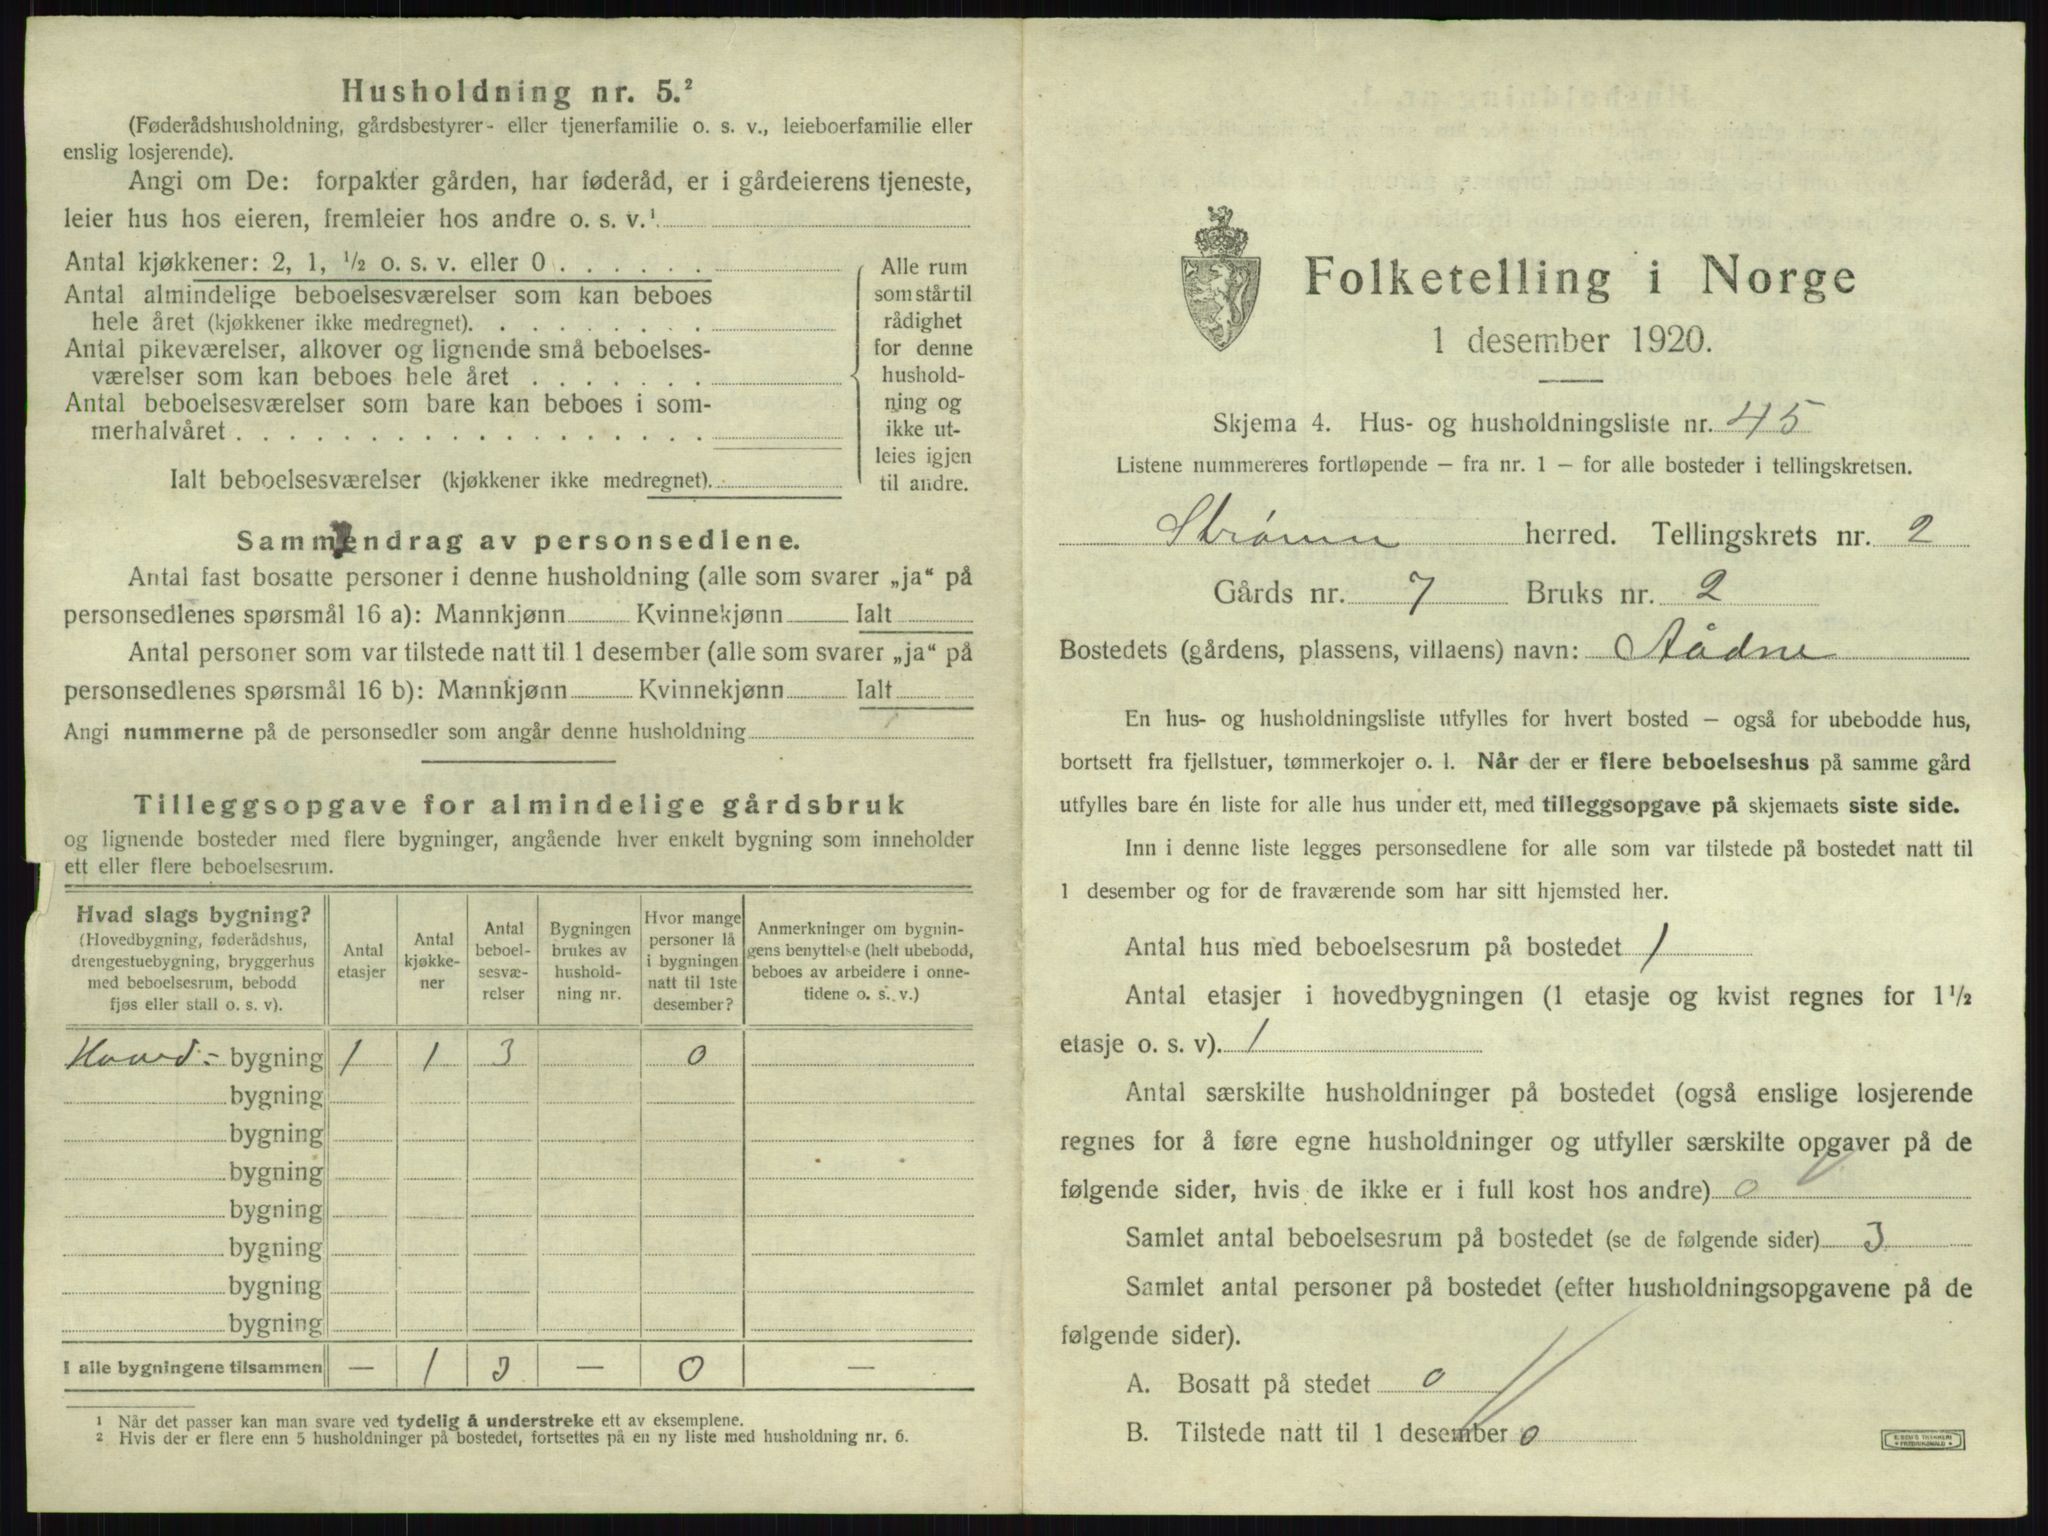 Husholdning nr. 5.²
(Føderådshusholdning, gårdsbestyrer- eller tjenerfamilie o. s. v., leieboerfamilie eller
enslig losjerende).
Angi om De: forpakter gården, har føderåd, er i gårdeierens tjeneste,
leier hus hos eieren, fremleier hos andre o. s. v.¹
Antal kjøkkener: 2, 1, ½ o. s. v. eller 0 . . . . . .
Antal almindelige beboelsesværelser som kan beboes
hele året (kjøkkener ikke medregnet). . . . . . . .
Antal pikeværelser, alkover og lignende små beboelses-
værelser som kan beboes hele året . . . . . . .
Antal beboelsesværelser som bare kan beboes i som-
merhalvåret . . . . . . . . . . . . . . . . . .
Ialt beboelsesværelser (kjøkkener ikke medregnet).
Alle rum
som står til
rådighet
for denne
hushold-
ning og
ikke ut-
leies igjen
til andre.
Sammendrag av personsedlene.
Antal fast bosatte personer i denne husholdning (alle som svarer „ja“ på
personsedlenes spørsmål 16 a): Mannkjønn Kvinnekjønn Ialt
Antal personer som var tilstede natt til 1 desember (alle som svarer „ja“ på
personsedlenes spørsmål 16 b): Mannkjønn Kvinnekjønn Ialt
Angi nummerne på de personsedler som angår denne husholdning
Tilleggsopgave for almindelige gårdsbruk
og lignende bosteder med flere bygninger, angående hver enkelt bygning som inneholder
ett eller flere beboelsesrum.
Hvad slags bygning?
(Hovedbygning, føderådshus,
drengestuebygning, bryggerhus
med beboelsesrum, bebodd
fjøs eller stall o. s. v).
Antal
etasjer
Antal
kjøkke-
ner
Antal
beboel-
sesvæ-
relser
Bygningen
brukes av
hushold-
ning nr.
Hvor mange
personer lå
i bygningen
natt til 1ste
desember?
Anmerkninger om bygnin-
gens benyttelse (helt ubebodd,
beboes av arbeidere i onne-
tidene o. s. v.)
Hoved- bygning 1 1 3 0
bygning
bygning
bygning
bygning
bygning
bygning
bygning
I alle bygningene tilsammen — 1 3 — 0 —
¹ Når det passer kan man svare ved tydelig å understreke ett av eksemplene.
² Hvis der er flere enn 5 husholdninger på bostedet, fortsettes på en ny liste med husholdning nr. 6.
Folketelling i Norge
1 desember 1920.
Skjema 4. Hus- og husholdningsliste nr. 45
Listene nummereres fortløpende – fra nr. 1 – for alle bosteder i tellingskretsen.
Strømm herred. Tellingskrets nr. 2
Gårds nr. 7 Bruks nr. 2
Bostedets (gårdens, plassens, villaens) navn: Aådne
En hus- og husholdningsliste utfylles for hvert bosted – også for ubebodde hus,
bortsett fra fjellstuer, tømmerkojer o. l. Når der er flere beboelseshus på samme gård
utfylles bare én liste for alle hus under ett, med tilleggsopgave på skjemaets siste side.
Inn i denne liste legges personsedlene for alle som var tilstede på bostedet natt til
1 desember og for de fraværende som har sitt hjemsted her.
Antal hus med beboelsesrum på bostedet 1
Antal etasjer i hovedbygningen (1 etasje og kvist regnes for 1½
etasje o. s. v). 1
Antal særskilte husholdninger på bostedet (også enslige losjerende
regnes for å føre egne husholdninger og utfyller særskilte opgaver på de
følgende sider, hvis de ikke er i full kost hos andre) 0
Samlet antal beboelsesrum på bostedet (se de følgende sider) 3
Samlet antal personer på bostedet (efter husholdningsopgavene på de
følgende sider).
A. Bosatt på stedet 0
B. Tilstede natt til 1 desember 0